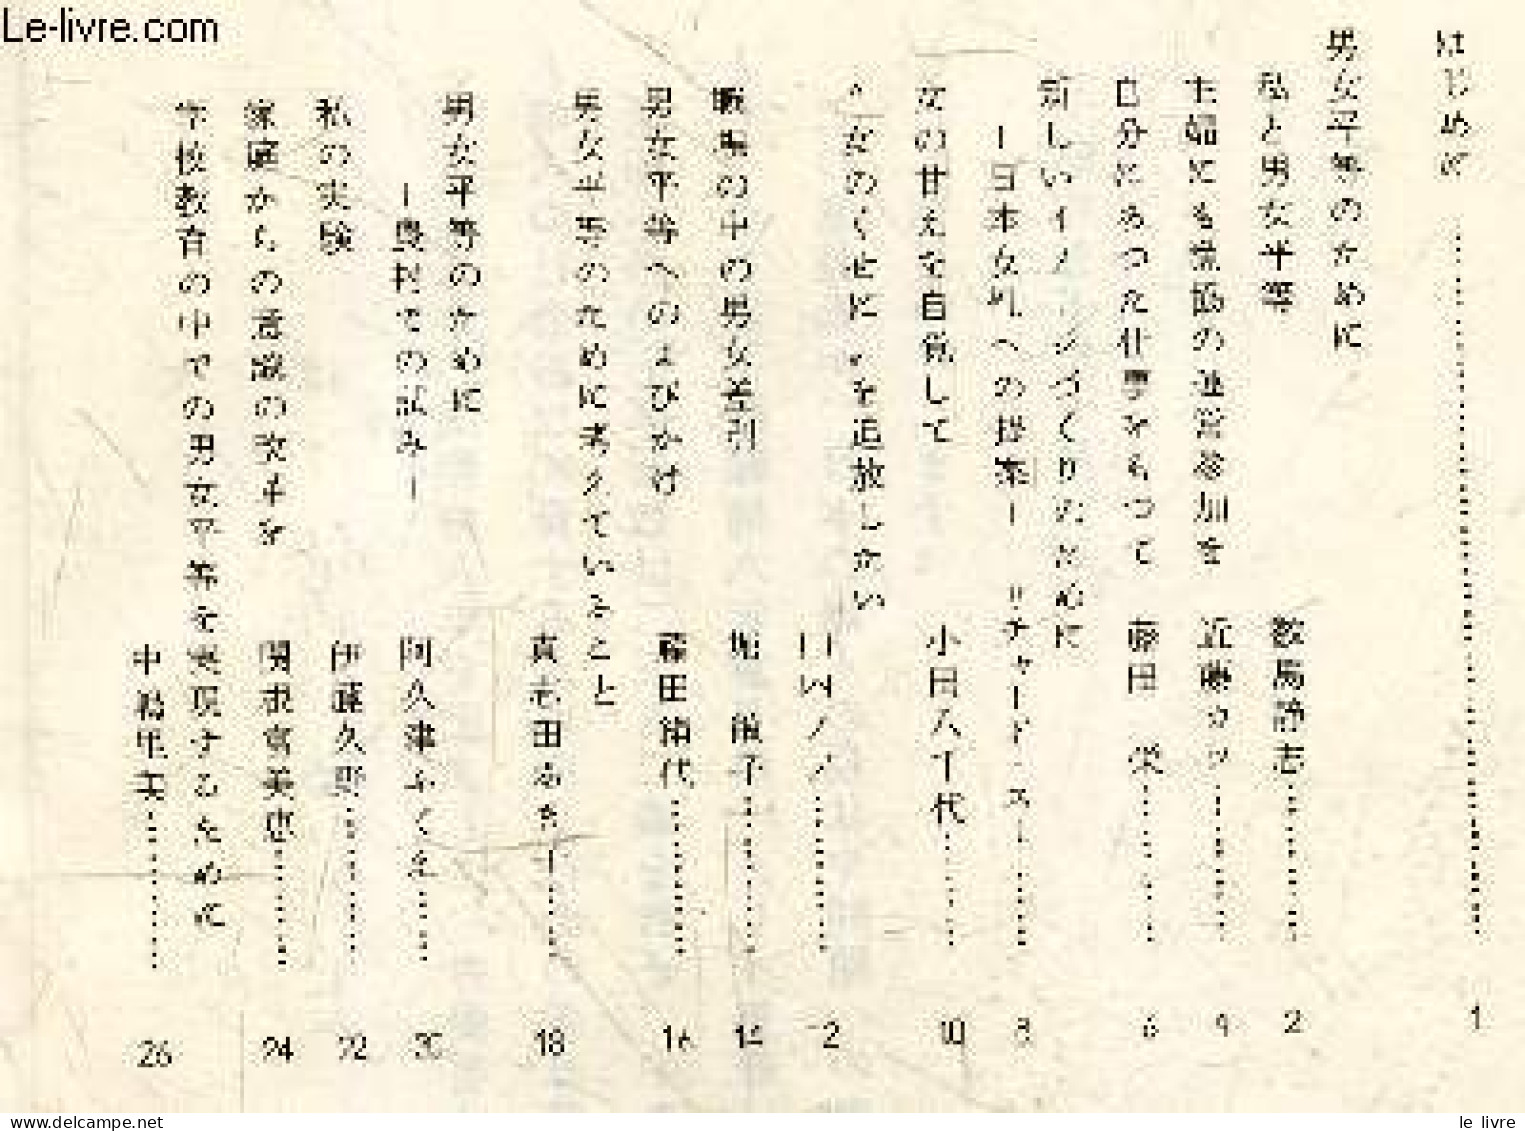 Le-livre.com
はじめに……………………1
男女平等のために
私と男女平等 数馬静志………2
主婦にも生協の運営参加を 近藤カツ………4
自分にあつた仕事をもつて 藤田 栄………6
新しいイメージづくりのために
ー日本女性への提案ー リチャード・ストー………8
女の甘えを自覚して 小田八千代………10
"女のくせに"を追放したい
………12
職場の中の男女差別 堀 敏子………14
男女平等へのよびかけ 藤田絹代………16
男女平等のために考えていること
真志田あき子………18
男女平等のために
ー農村での試みー 阿久津ふくゑ………20
私の実験 伊藤久野………22
家庭からの意識の改革を 関根喜美恵………24
学校教育の中での男女平等を実現するために
中島里美………26
www.le-livre.com
le livre